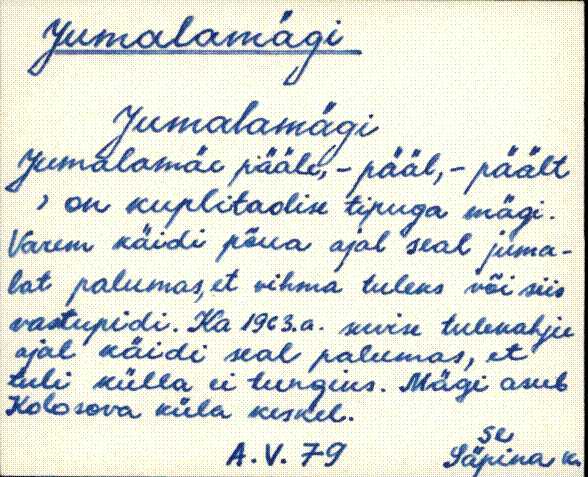 Jumalamägi
Jumalamägi
Jumalamäe pääle, - pääl, - päält
, on kuplitaolise tipuga mägi.
Varem käidi põua ajal seal juma-
lat palumas, et vihma tuleks või siis
vastupidi. Ka 1963.a. suvise tulekahju
ajal käidi seal palumas, et
tuli külla ei tungiks. Mägi asub
Kolosova küla keskel.
Se
A.V. 79 Säpina k.